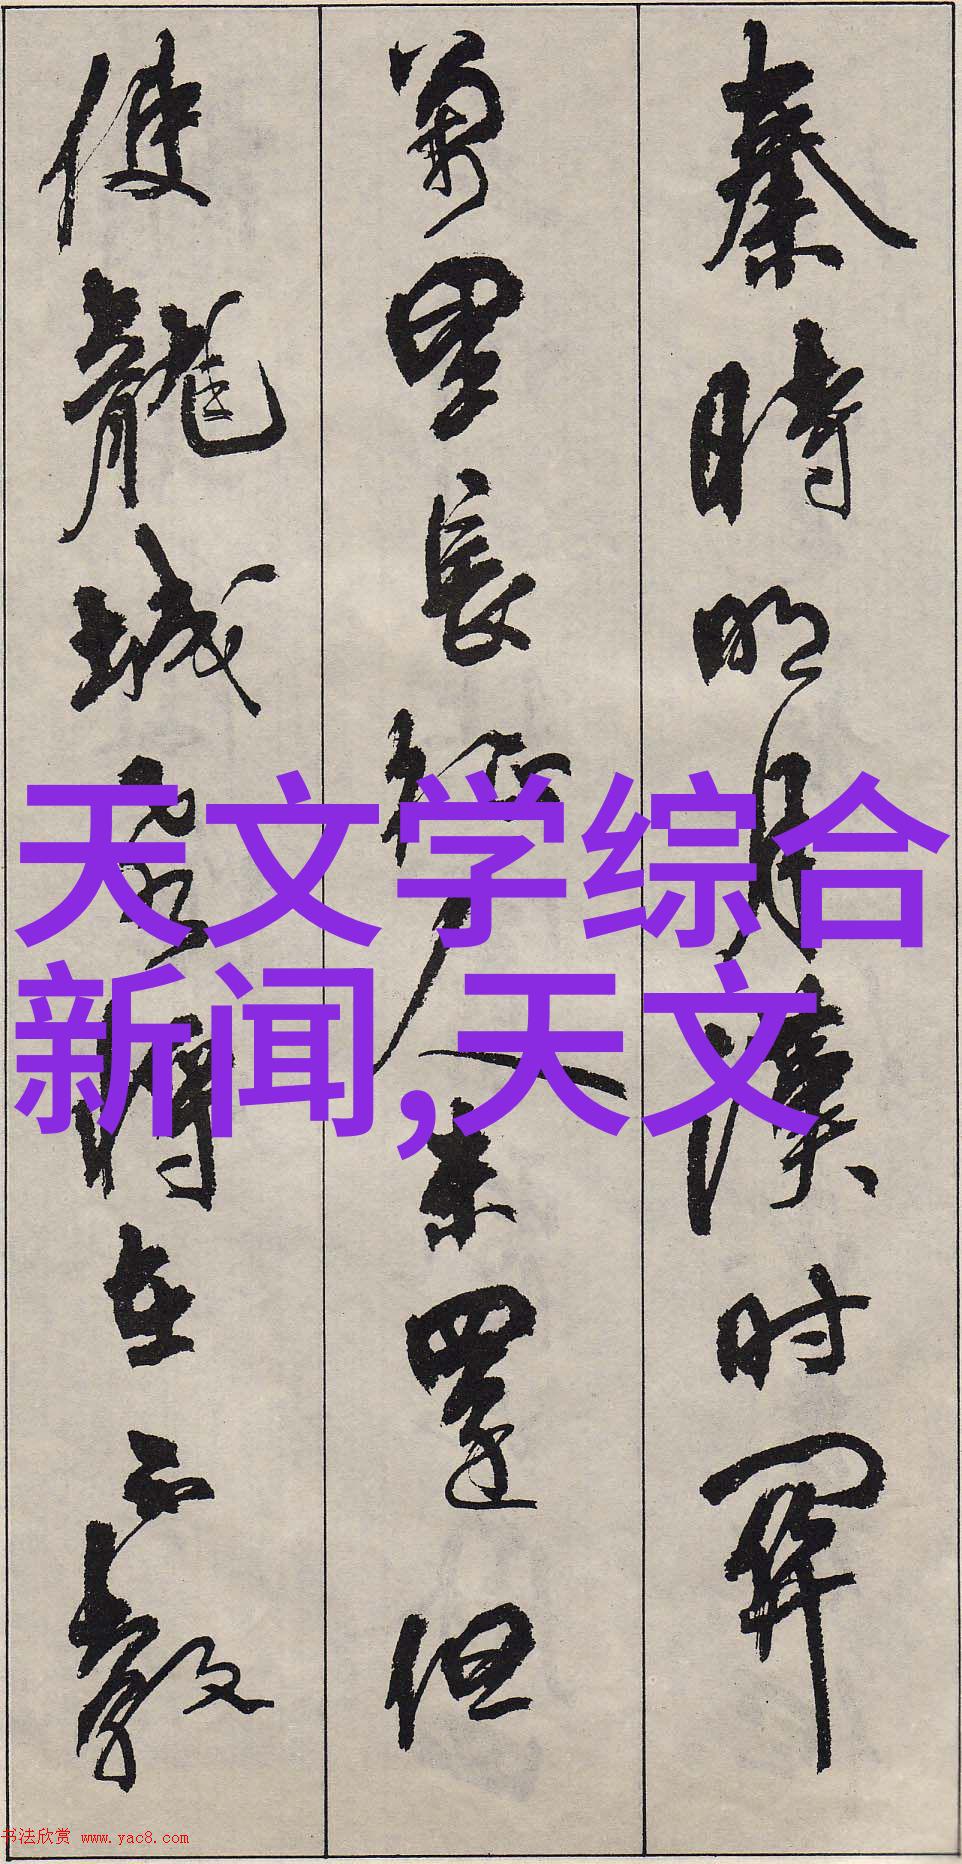 秦時明月漢时関
萬里長征人未還但
使龍城飛將在不教
天文学综合
新闻,天文
书法欣赏 www.yac8.com